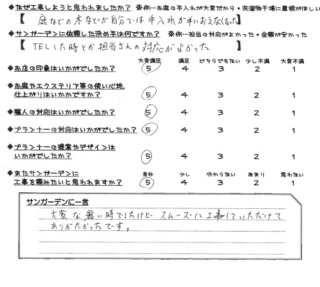 ◆なぜ工事しようと思われましたか？ 案例…お庭の手入れが大変だから・洗濯物干場に屋根がほしい
【 庭などの木などが自分では手入れが手におえなくなった 】
◆サンガーデンに依頼した決め手は何ですか？ 案例…担当の対応がよかった・金額が安かった
【 TELした時とか担当さんの対応がよかった 】
大変満足 満足 どちらでもない 少し不満 大変不満
◆お店の印象はいかがでしたか？ 5 4 3 2 1
◆お庭やエクステリア等の使い心地、
仕上がりはいかがですか？ 5 4 3 2 1
◆職人の対応はいかがでしたか？ 5 4 3 2 1
◆プランナーの対応はいかがでしたか？ 5 4 3 2 1
◆プランナーの提案やデザインは
いかがでしたか？ 5 4 3 2 1
◆またサンガーデンに 是非 少し 分からない あまり 思わない
工事を頼みたいと思われますか？ 5 4 3 2 1
サンガーデンに一言
大変な暑い時でしたけど スムーズに工事していただけて
ありがたかったです。